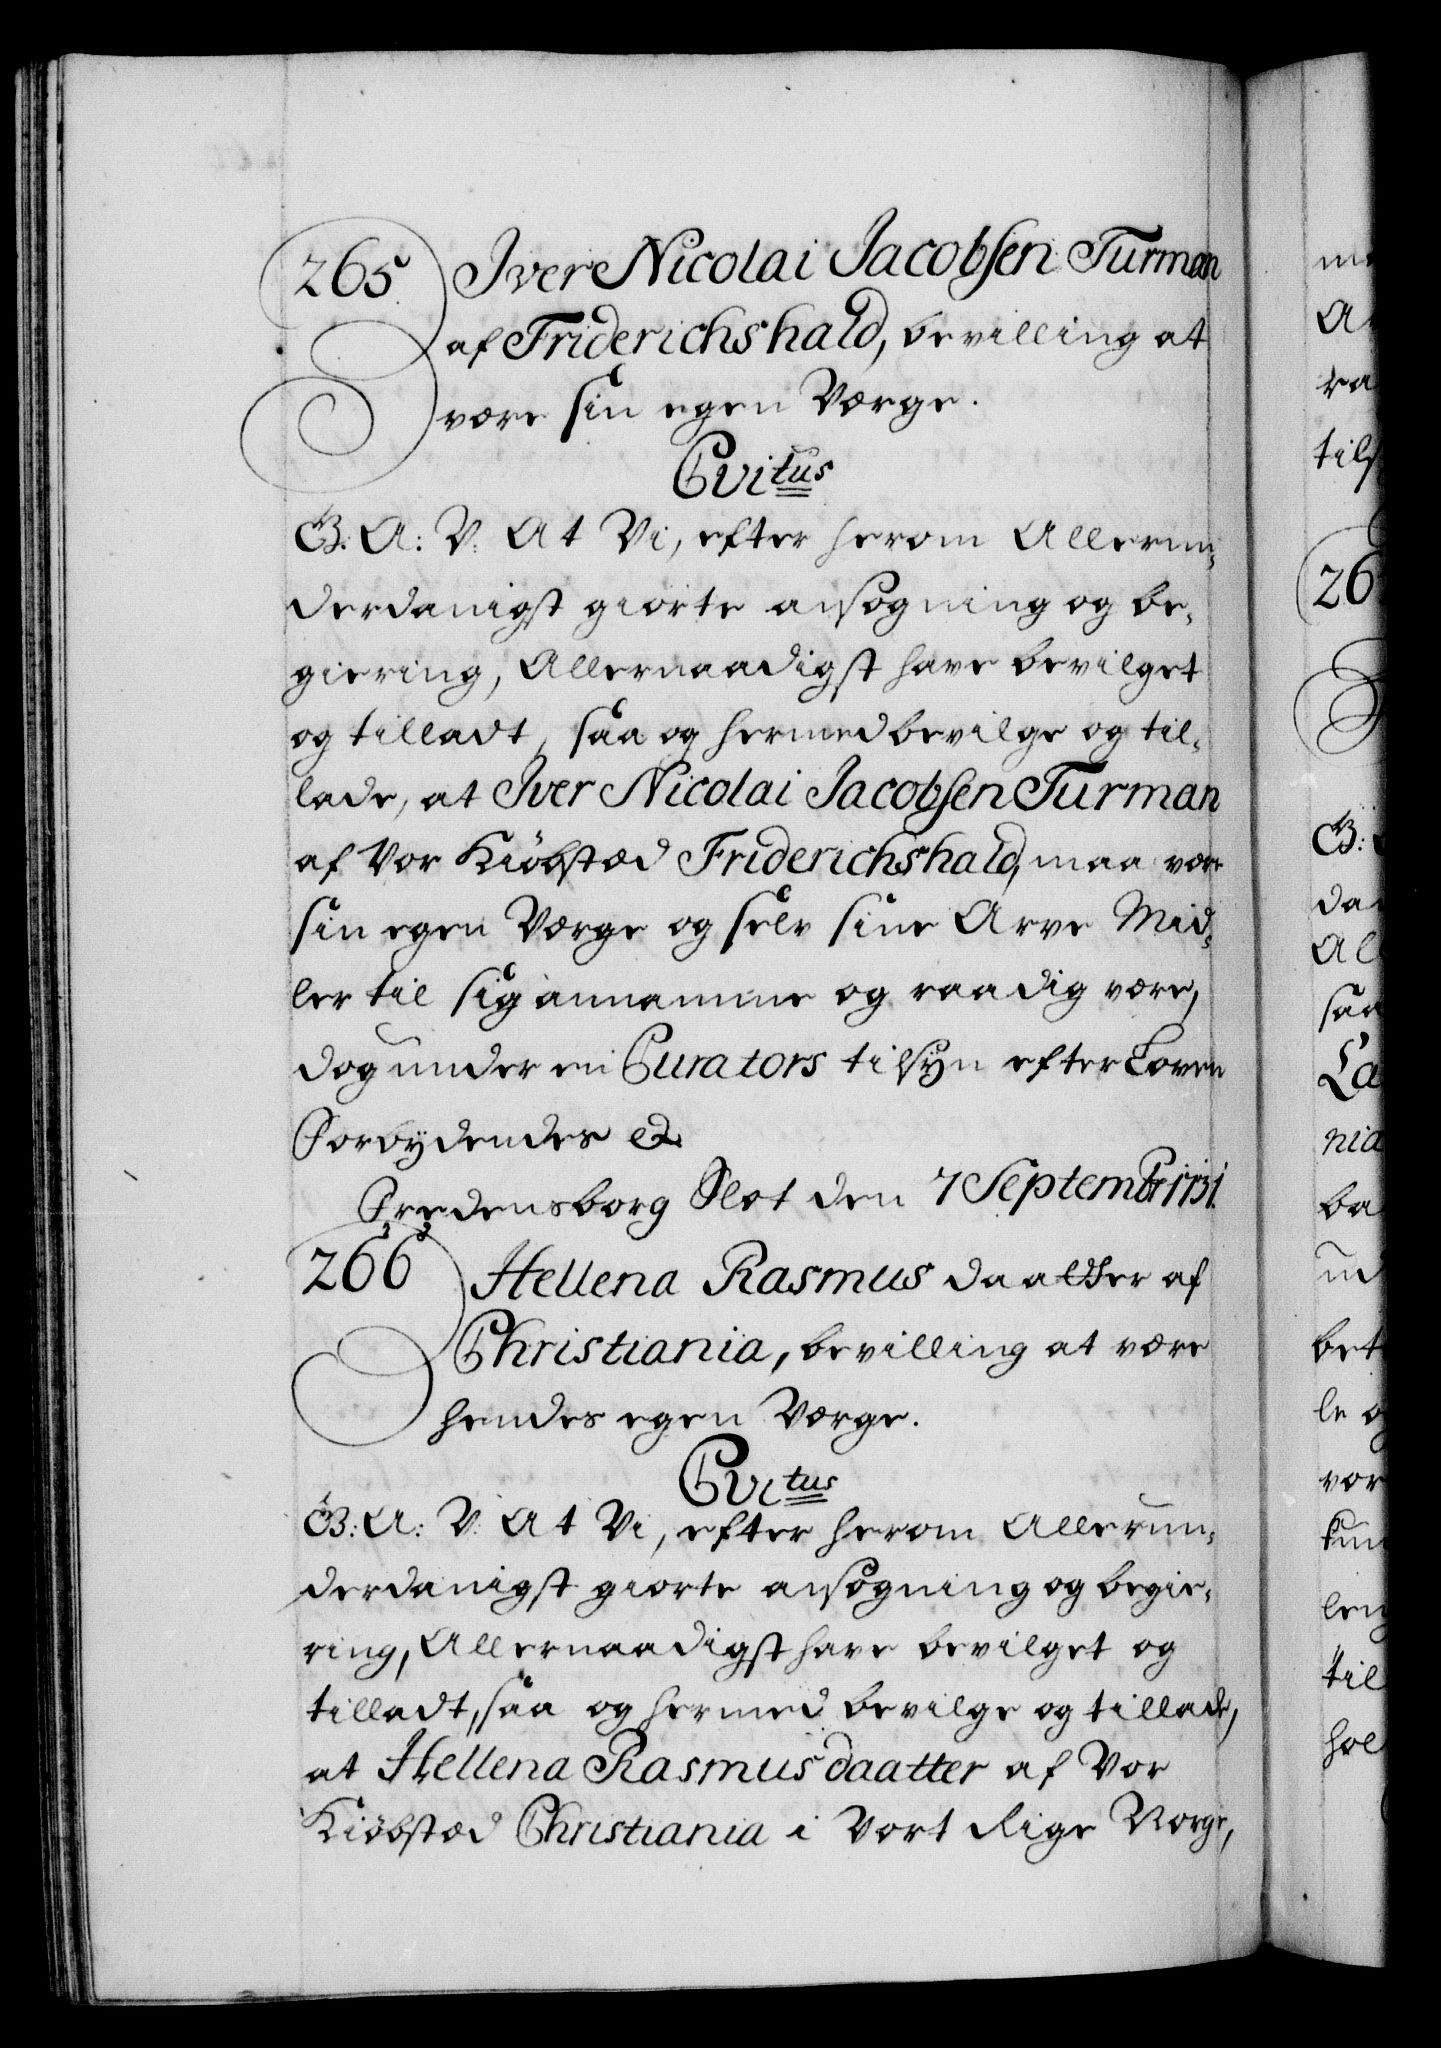 265. Iver Nicolai Jacobsen Turman
af Friderichshald, bevilling at
være sin egen Værge.
Gvitus
G: A: V. At Vi, efter herom Allerun-
derdanigst giorte ansøgning og be-
giering, Allernaadigst have bevilget
og tilladt, saa og hermed bevilge og til-
lade, at Iver Nicolai Jacobsen Turman
af Vor Kiöbstæd Friderichshald, maa være
sin egen Værge og selv sine Arve Mid-
ler til sig annamme og raadig være,
dog under en Curators tilsyn efter Loven
Forbydendes etc.
Fredensborg Slot den 7 Septembr 1731.
266 Hellena Rasmus daatter af
Christiania, bevilling at være
hendes egen Værge.
Gvitus
G: A: V. At Vi, efter herom Allerun-
derdanigst giorte ansøgning og begie-
ring, Allernaadigst have bevilget og
tilladt, saa og hermed bevilge og tillade,
at Hellena Rasmus daatter af Vor
Kiöbstæd Christiania i Vort Rige Norge,